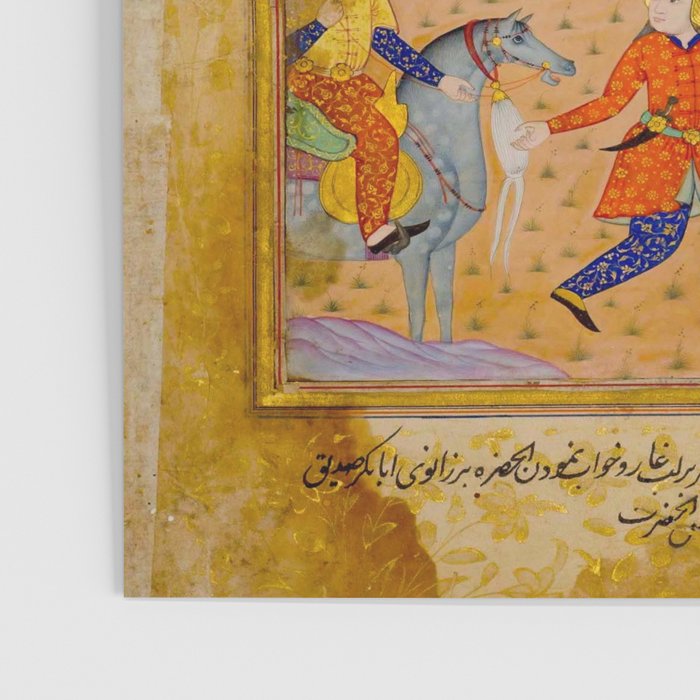 برلب غار و خواب نمودن آنحضره بر زانوی ابابکر صدیق
آنحضرت